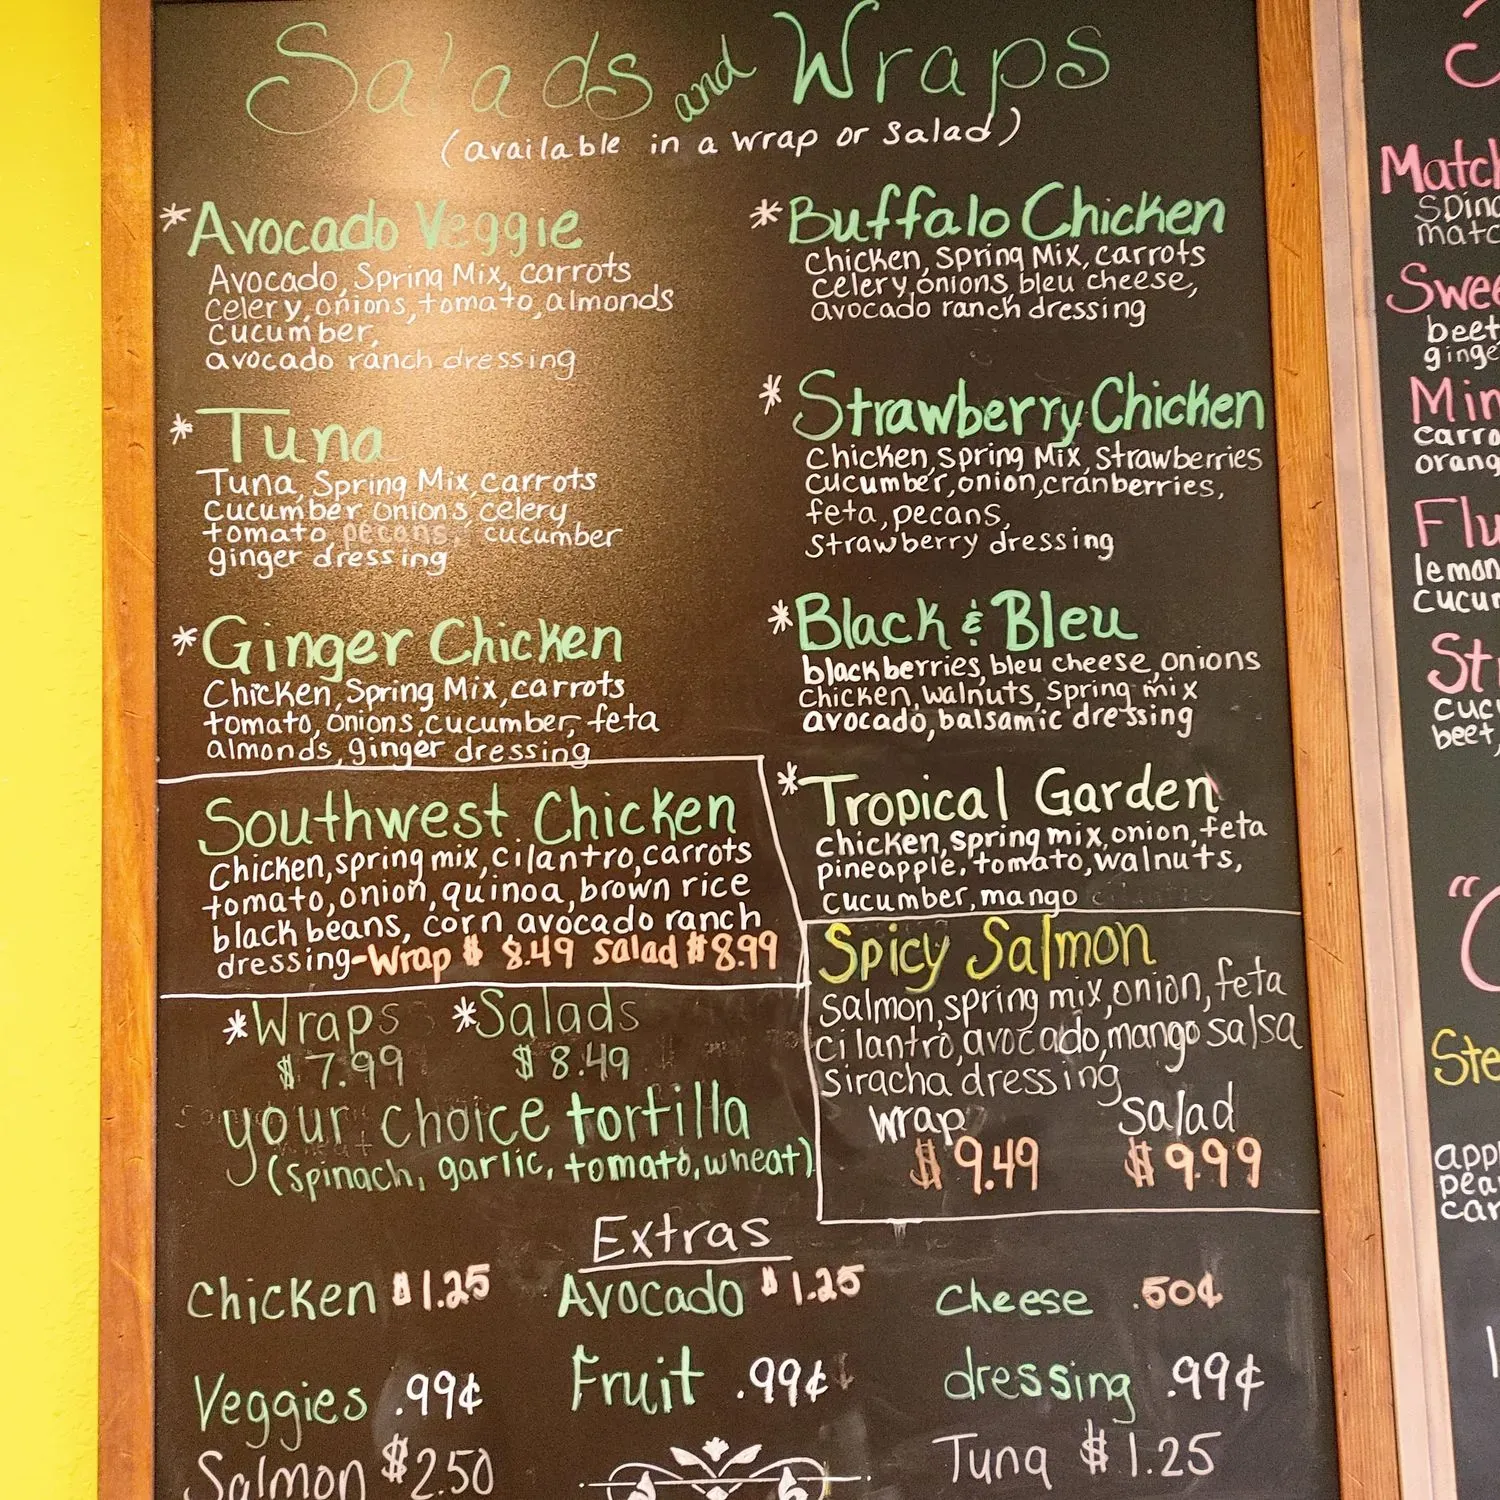 Salads and Wraps
(available in a wrap or salad)
*Avocado Veggie
Avocado, Spring Mix, carrots
celery, onions, tomato, almonds
cucumber,
avocado ranch dressing
*Tuna
Tuna, Spring Mix, carrots
cucumber onions, celery
tomato pecans, cucumber
ginger dressing
*Ginger Chicken
Chicken, Spring Mix, carrots
tomato, onions, cucumber, feta
almonds, ginger dressing
Southwest Chicken
chicken, spring mix, cilantro, carrots
tomato, onion, quinoa, brown rice
black beans, corn avocado ranch
dressing-Wrap $ 8.49 Salad $8.99
*Wraps *Salads
$7.99 $8.49
your choice tortilla
(spinach, garlic, tomato, wheat)
*Buffalo Chicken
Chicken, Spring Mix, carrots
celery, onions, bleu cheese,
avocado ranch dressing
*Strawberry Chicken
Chicken, Spring Mix, Strawberries
cucumber, onion, cranberries,
feta, pecans,
Strawberry dressing
*Black & Bleu
blackberries, bleu cheese, onions
Chicken, walnuts, Spring mix
avocado, balsamic dressing
*Tropical Garden
chicken, spring mix, onion, feta
pineapple, tomato, walnuts,
cucumber, mango
Spicy Salmon
salmon, spring mix, onion, feta
cilantro, avocado, mango salsa
siracha dressing
wrap salad
$9.49 $9.99
Extras
Chicken $1.25 Avocado $1.25 Cheese .50¢
Veggies .99¢ Fruit .99¢ dressing .99¢
Salmon $2.50 Tuna $1.25
beet
lemon
beet,